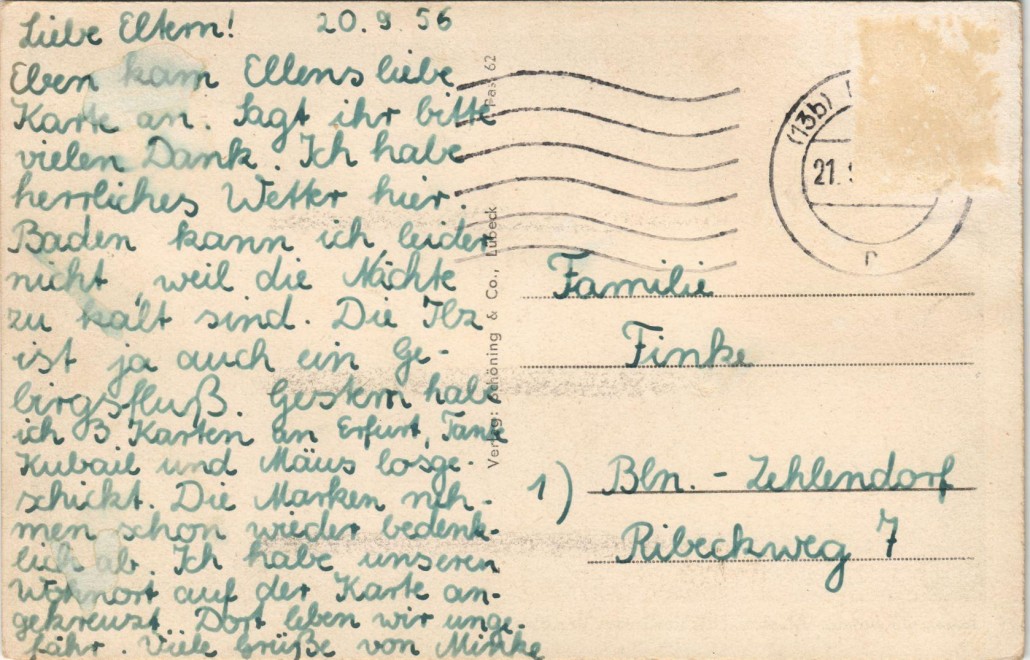 Liebe Eltern! 20.9 56
Eben kam Ellens liebe
Karte an. Sagt ihr bitte
vielen Dank. Ich habe
herrliches Wetter hier.
Baden kann ich leider
nicht, weil die Nächte
zu kalt sind. Die Ilz
ist ja auch ein Ge-
birgsfluß. Gestern habe
ich 3 Karten an Erfurt, Tante
Kubail und Mäus losge-
schickt. Die Marken neh-
men schon wieder bedenk-
lich ab. Ich habe unseren
Wohnort auf der Karte an-
gekreuzt. Dort leben wir unge-
fähr. Viele Grüße von Minke
Verlag: Schöning & Co., Lübeck
Pass 62
(13b)
21.
Familie
Finke
1) Bln. - Zehlendorf
Ribeckweg 7